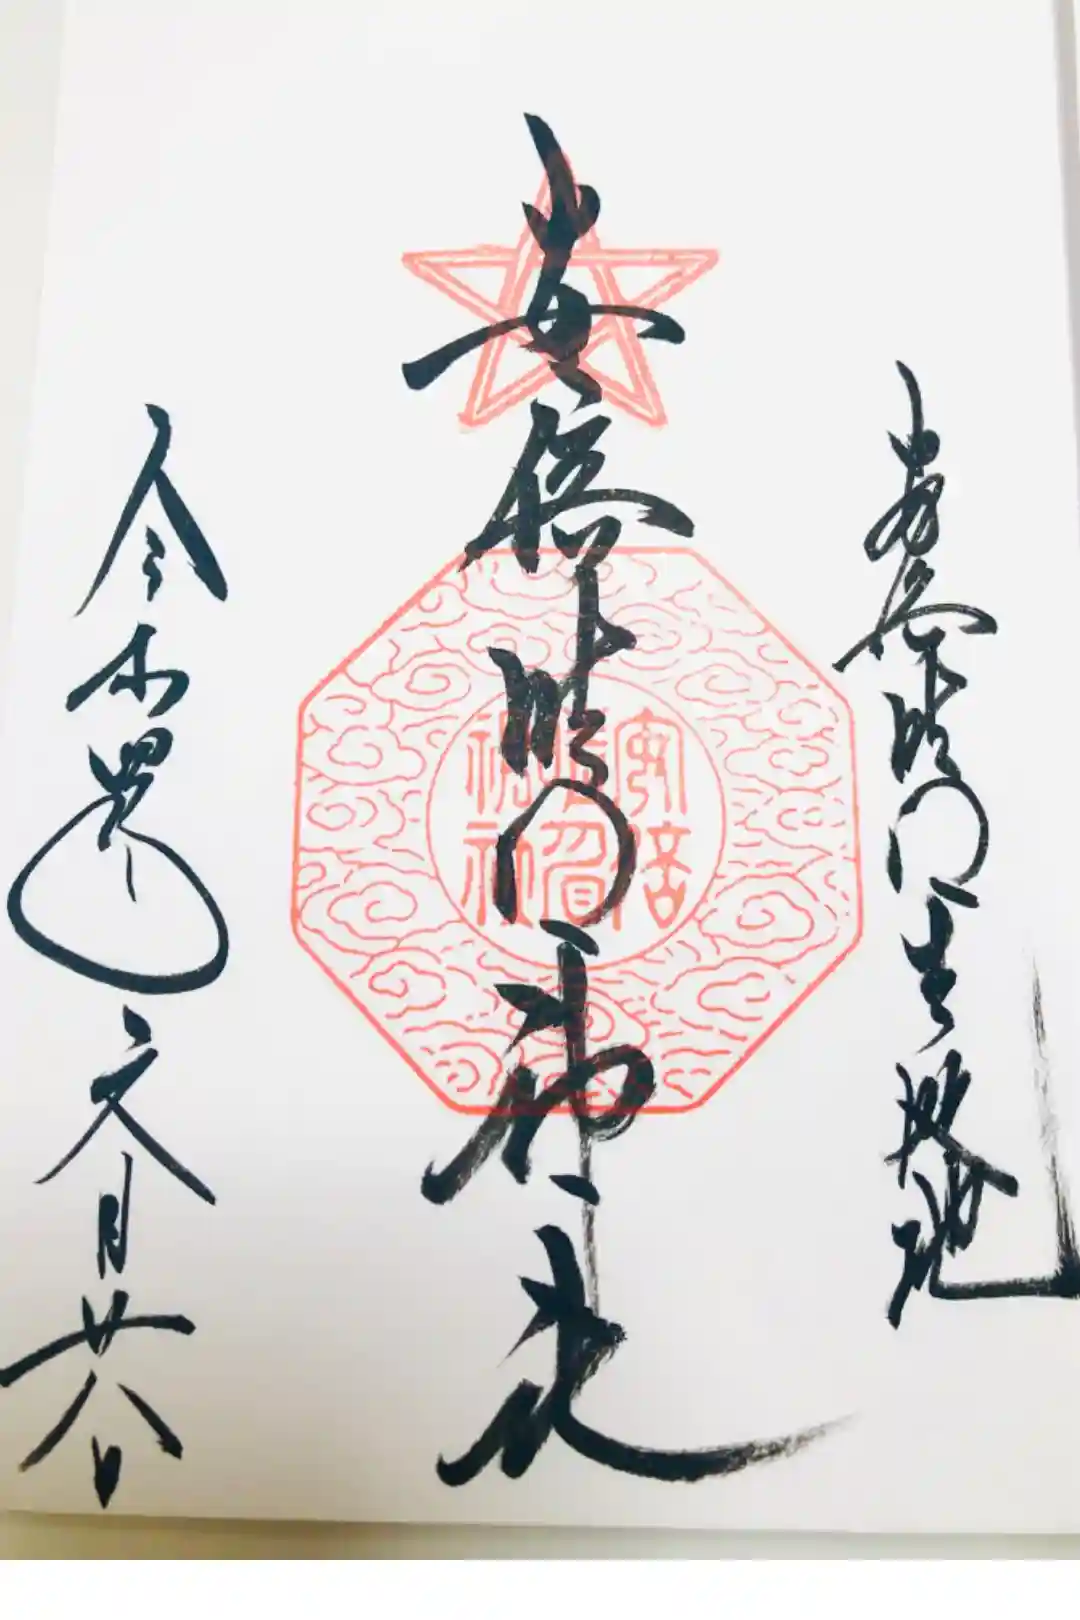 安倍晴明生誕地
安倍晴明神社
安倍
晴明
神社
令和四年文月廿八日